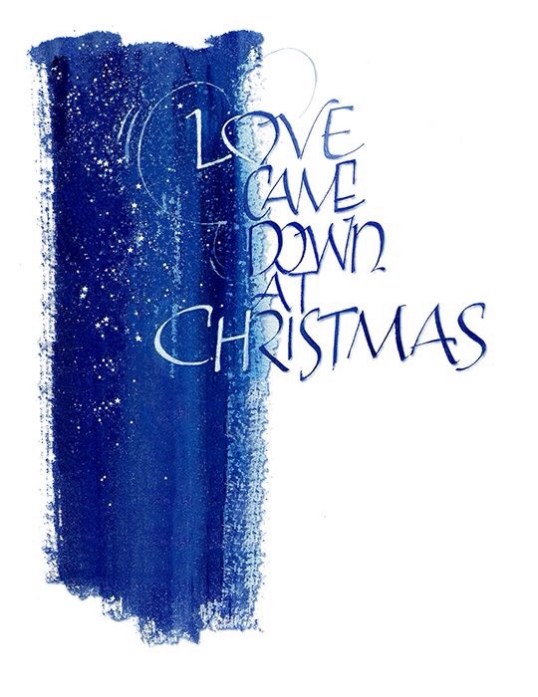 LOVE
CAME
DOWN
AT
CHRISTMAS